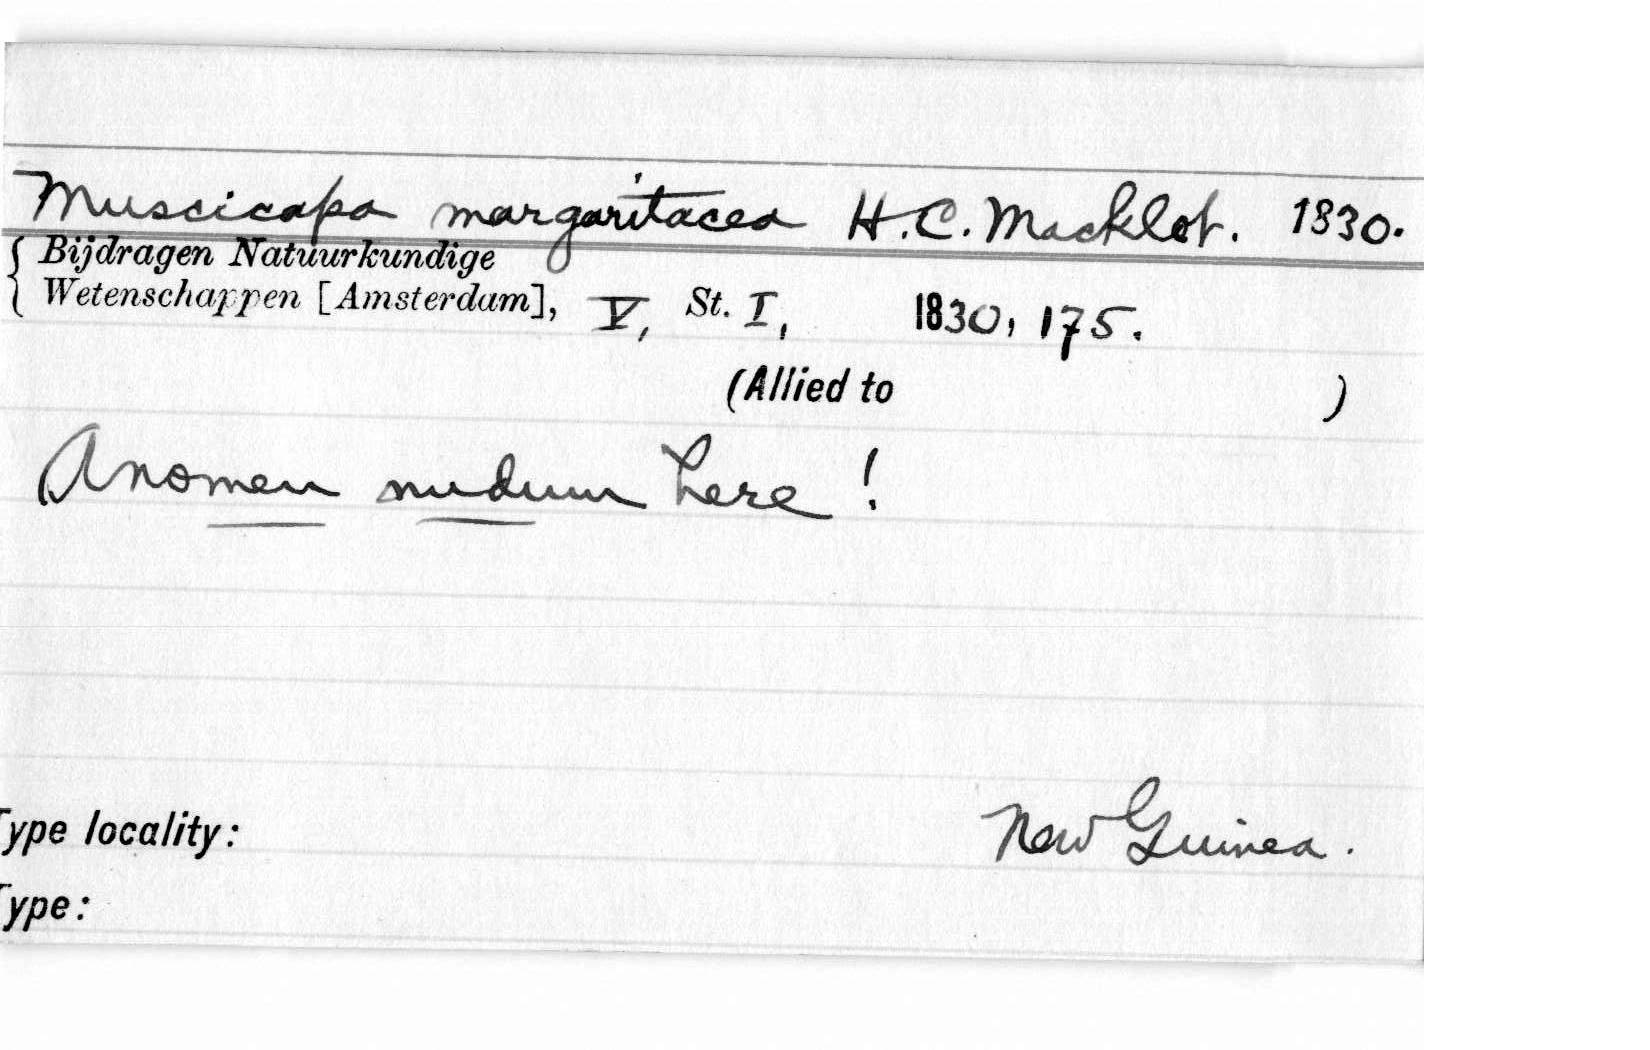 Muscicapa margaritacea H.C. Macklot. 1830.
Bijdragen Natuurkundige
Wetenschappen [Amsterdam], V, St. I, 1830, 175.
(Allied to )
A nomen nudum here!
Type locality: New Guinea.
Type: